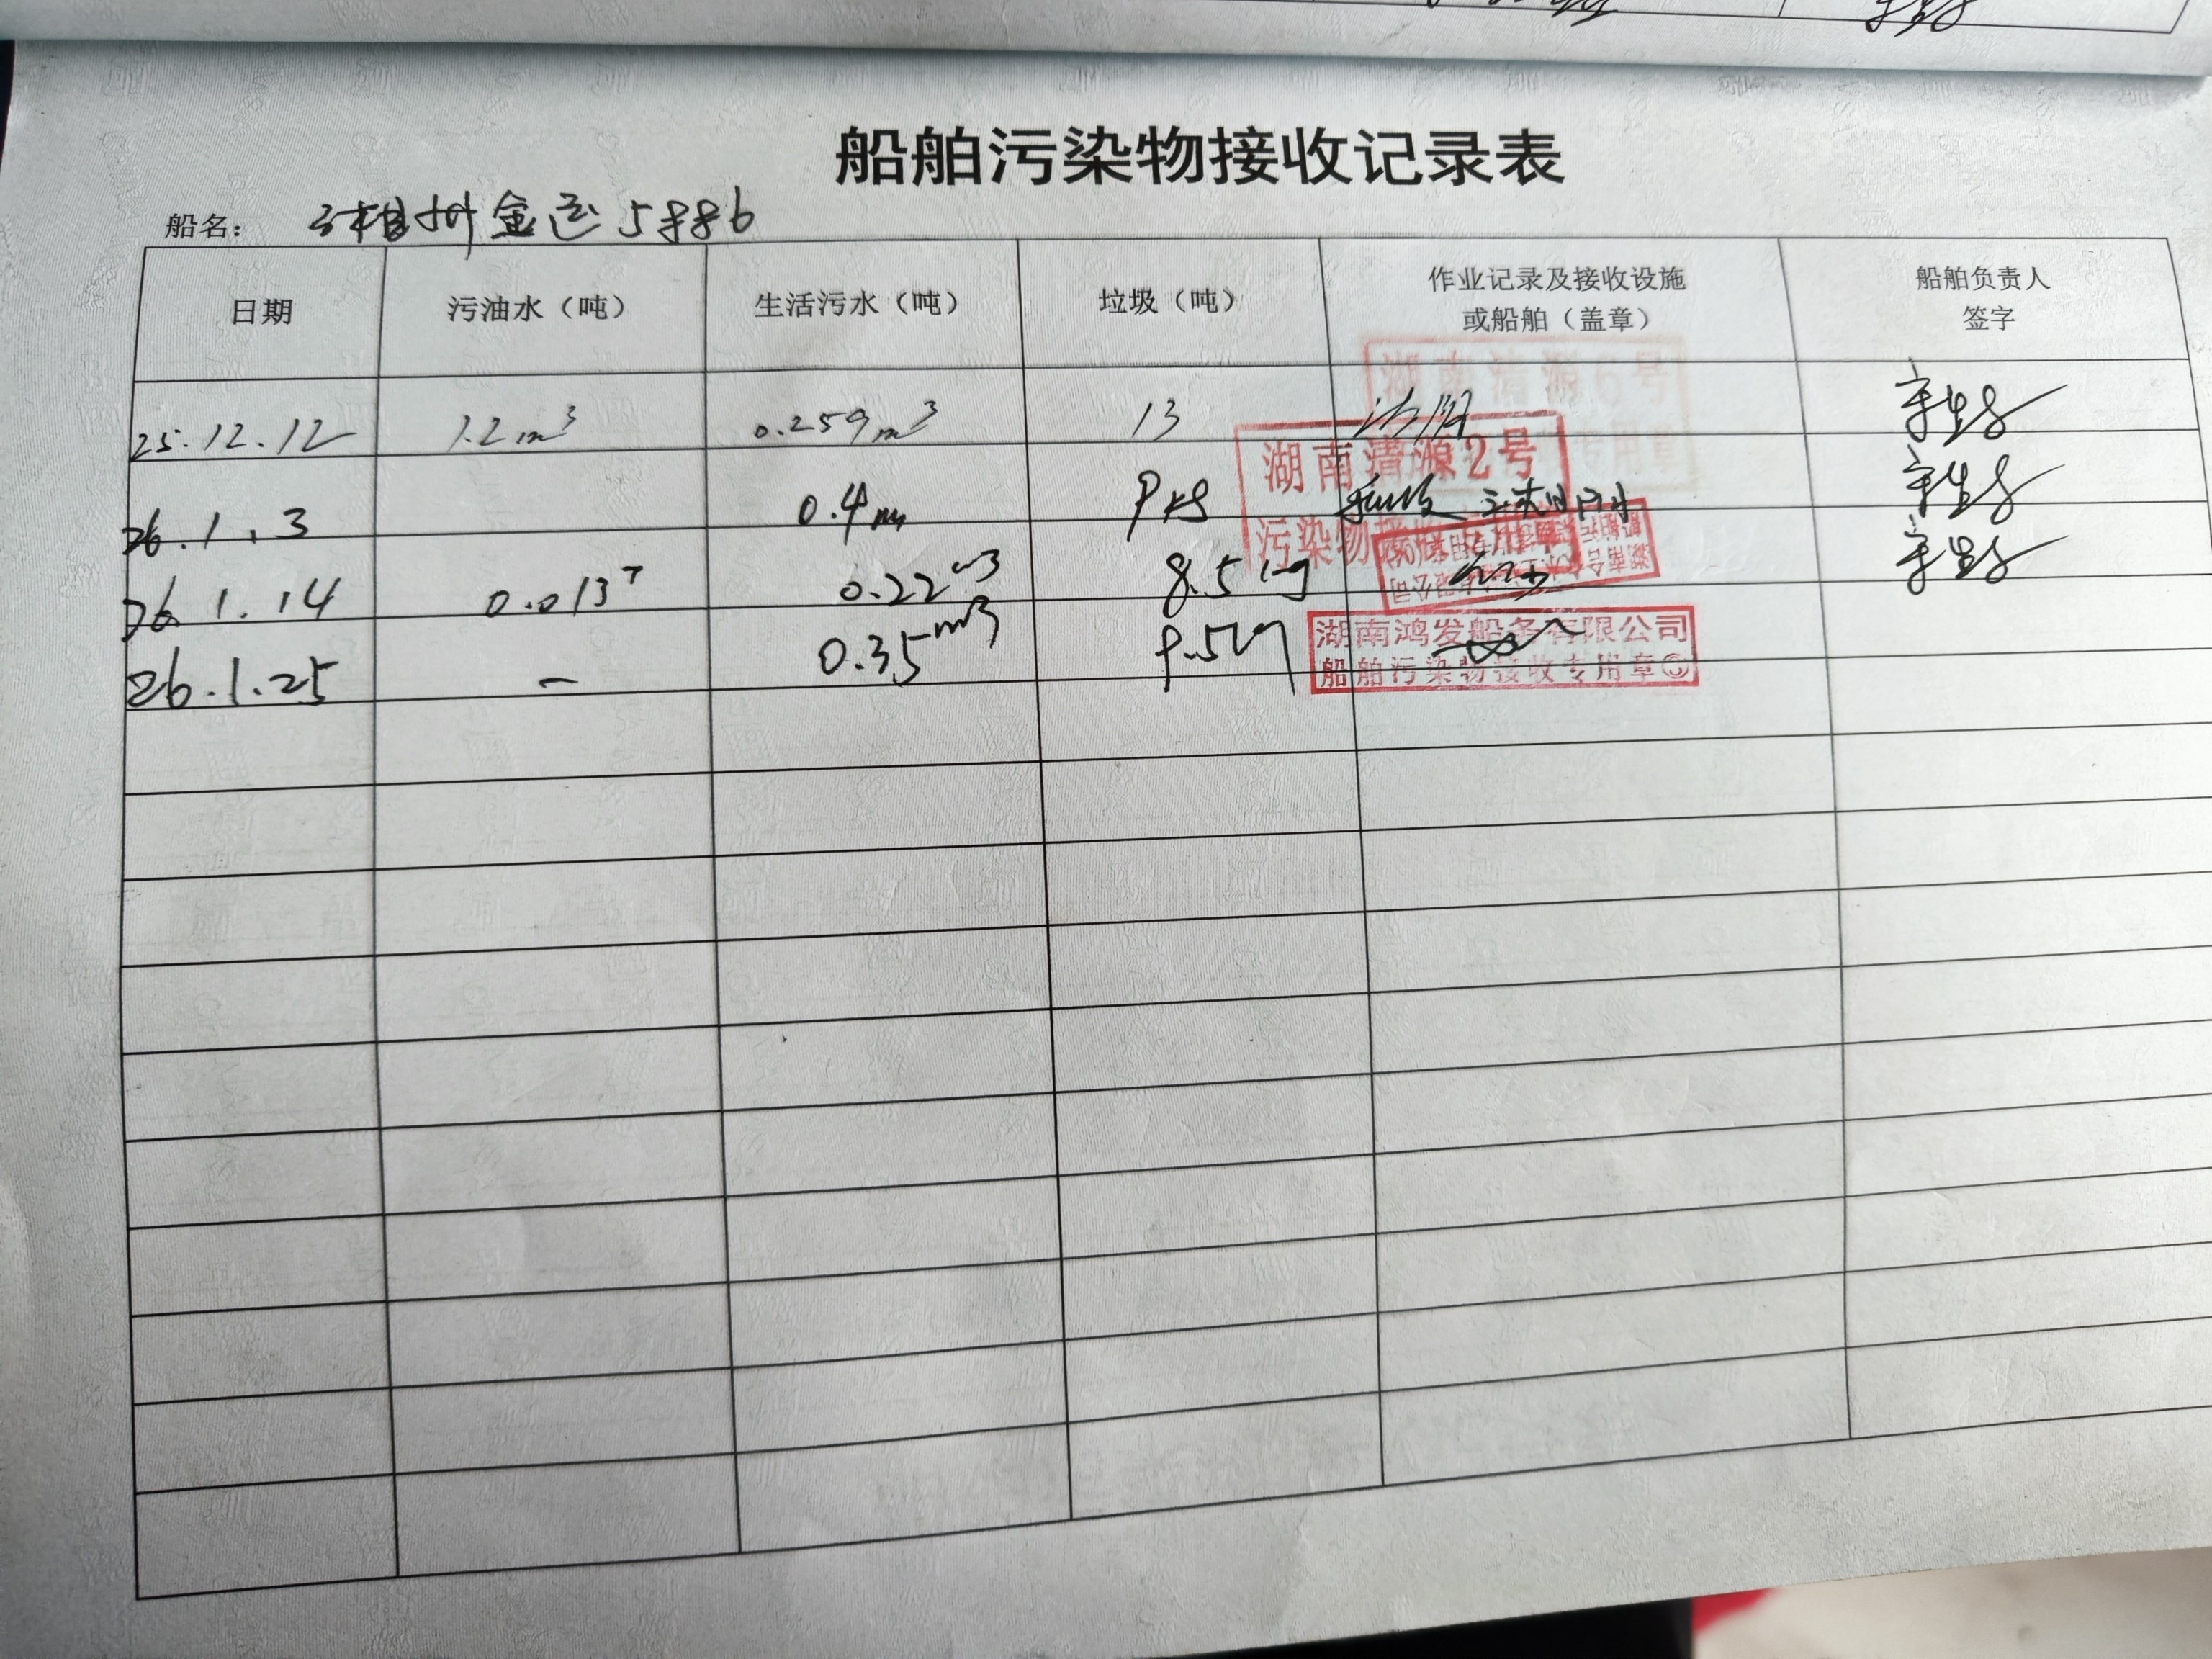 船舶污染物接收记录表
船名： 湘州金运5886
日期 污油水（吨） 生活污水（吨） 垃圾（吨） 作业记录及接收设施或船舶（盖章） 船舶负责人签字
25.12.12 1.2m³ 0.259m³ 13
湖南清源6号
专用章
26.1.3 0.4m 9kg
湖南清源2号
污染物接收专用章
26.1.14 0.013T 0.22m3 8.5kg
26.1.25 - 0.35m3 9.5kg
湖南鸿发船务有限公司
船舶污染物接收专用章⑤